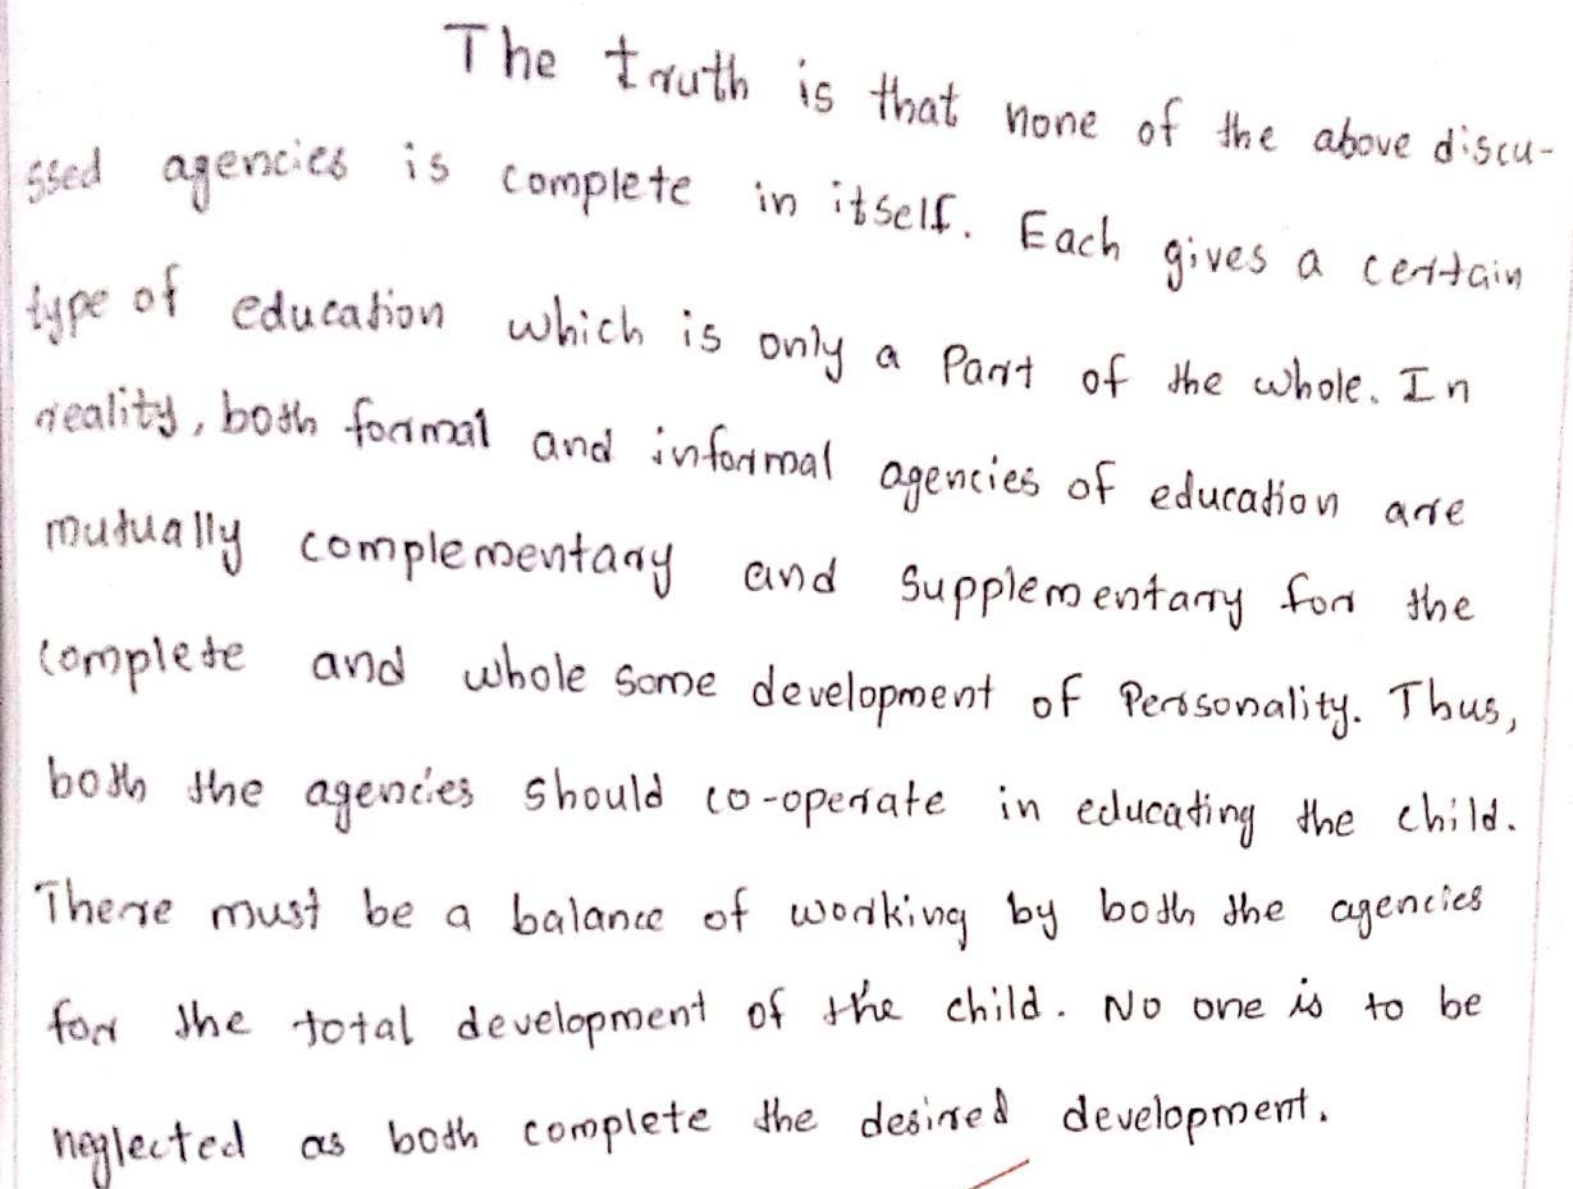 The truth is that none of the above discu-
ssed agencies is complete in itself. Each gives a certain
type of education which is only a Part of the whole. In
reality, both formal and informal agencies of education are
mutually complementary and Supplementary for the
complete and whole some development of Personality. Thus,
both the agencies should co-operate in educating the child.
There must be a balance of working by both the agencies
for the total development of the child. No one is to be
neglected as both complete the desired development.